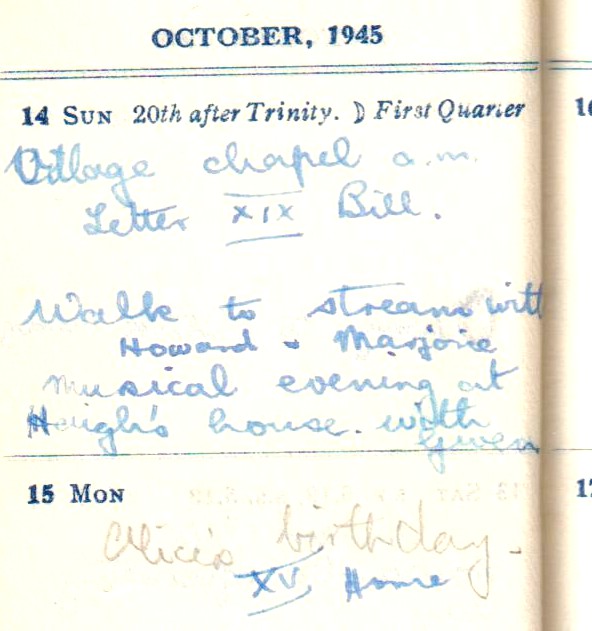 OCTOBER, 1945
14 SUN 20th after Trinity. ☽ First Quarter
Village chapel a.m.
Letter XIX Bill.
Walk to stream with
Howard & Marjorie
Musical evening at
Heigh's house. with
Gwen
15 MON
Alice's birthday.
XV Home